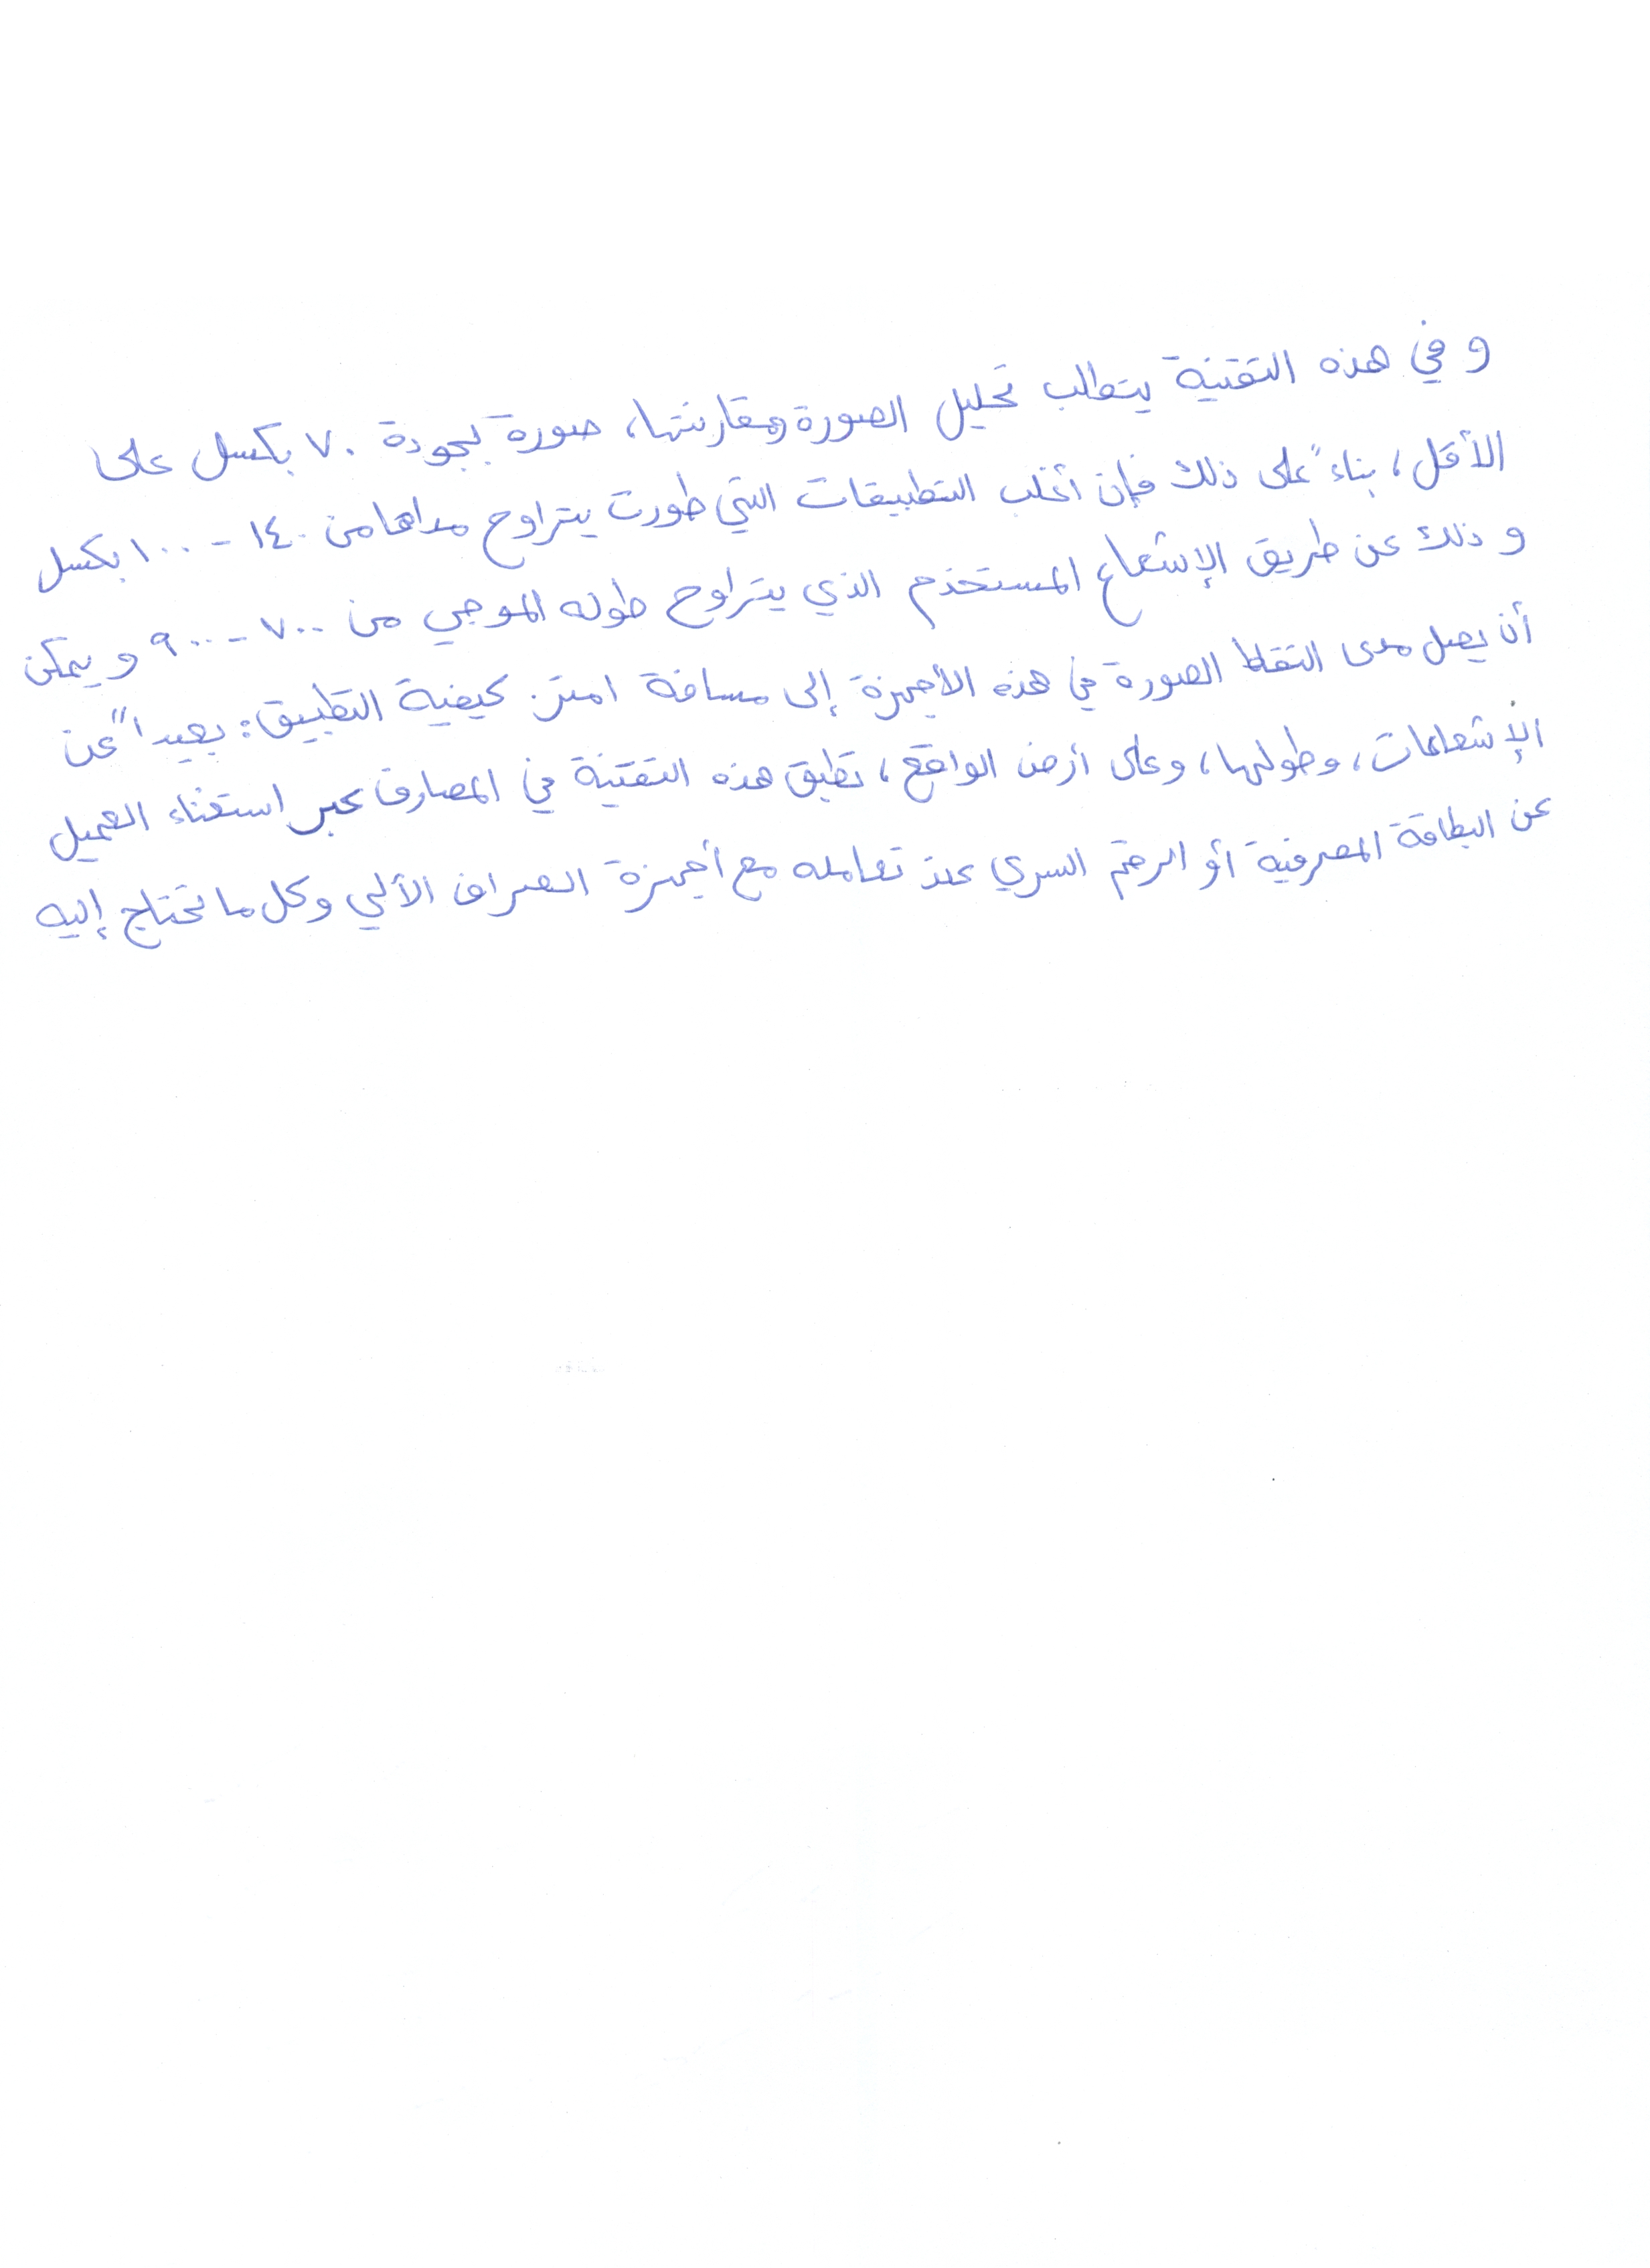 و في هذه التقنية يتطلب تحليل الصورة ومقارنتها، صورة بجودة ٧٠ بكسل على
الأقل، بناءً على ذلك فإن أغلب التطبيقات التي طورت يتراوح مداها من ١٤٠ - ١٠٠ بكسل
و ذلك عن طريق الإشعاع المستخدم الذي يتراوح طوله الموجي من ٧٠٠ - ٩٠٠ و يمكن
أن يصل مدى التقاط الصورة في هذه الأجهزة إلى مسافة ١متر. كيفية التطبيق: بعيداً عن
الإشعاعات، وطولها، وعلى أرض الواقع، تطبق هذه التقنية في المصارف عبر استغناء العميل
عن البطاقة المصرفية أو الرقم السري عند تعامله مع أجهزة الصراف الألي وكل ما تحتاج إليه